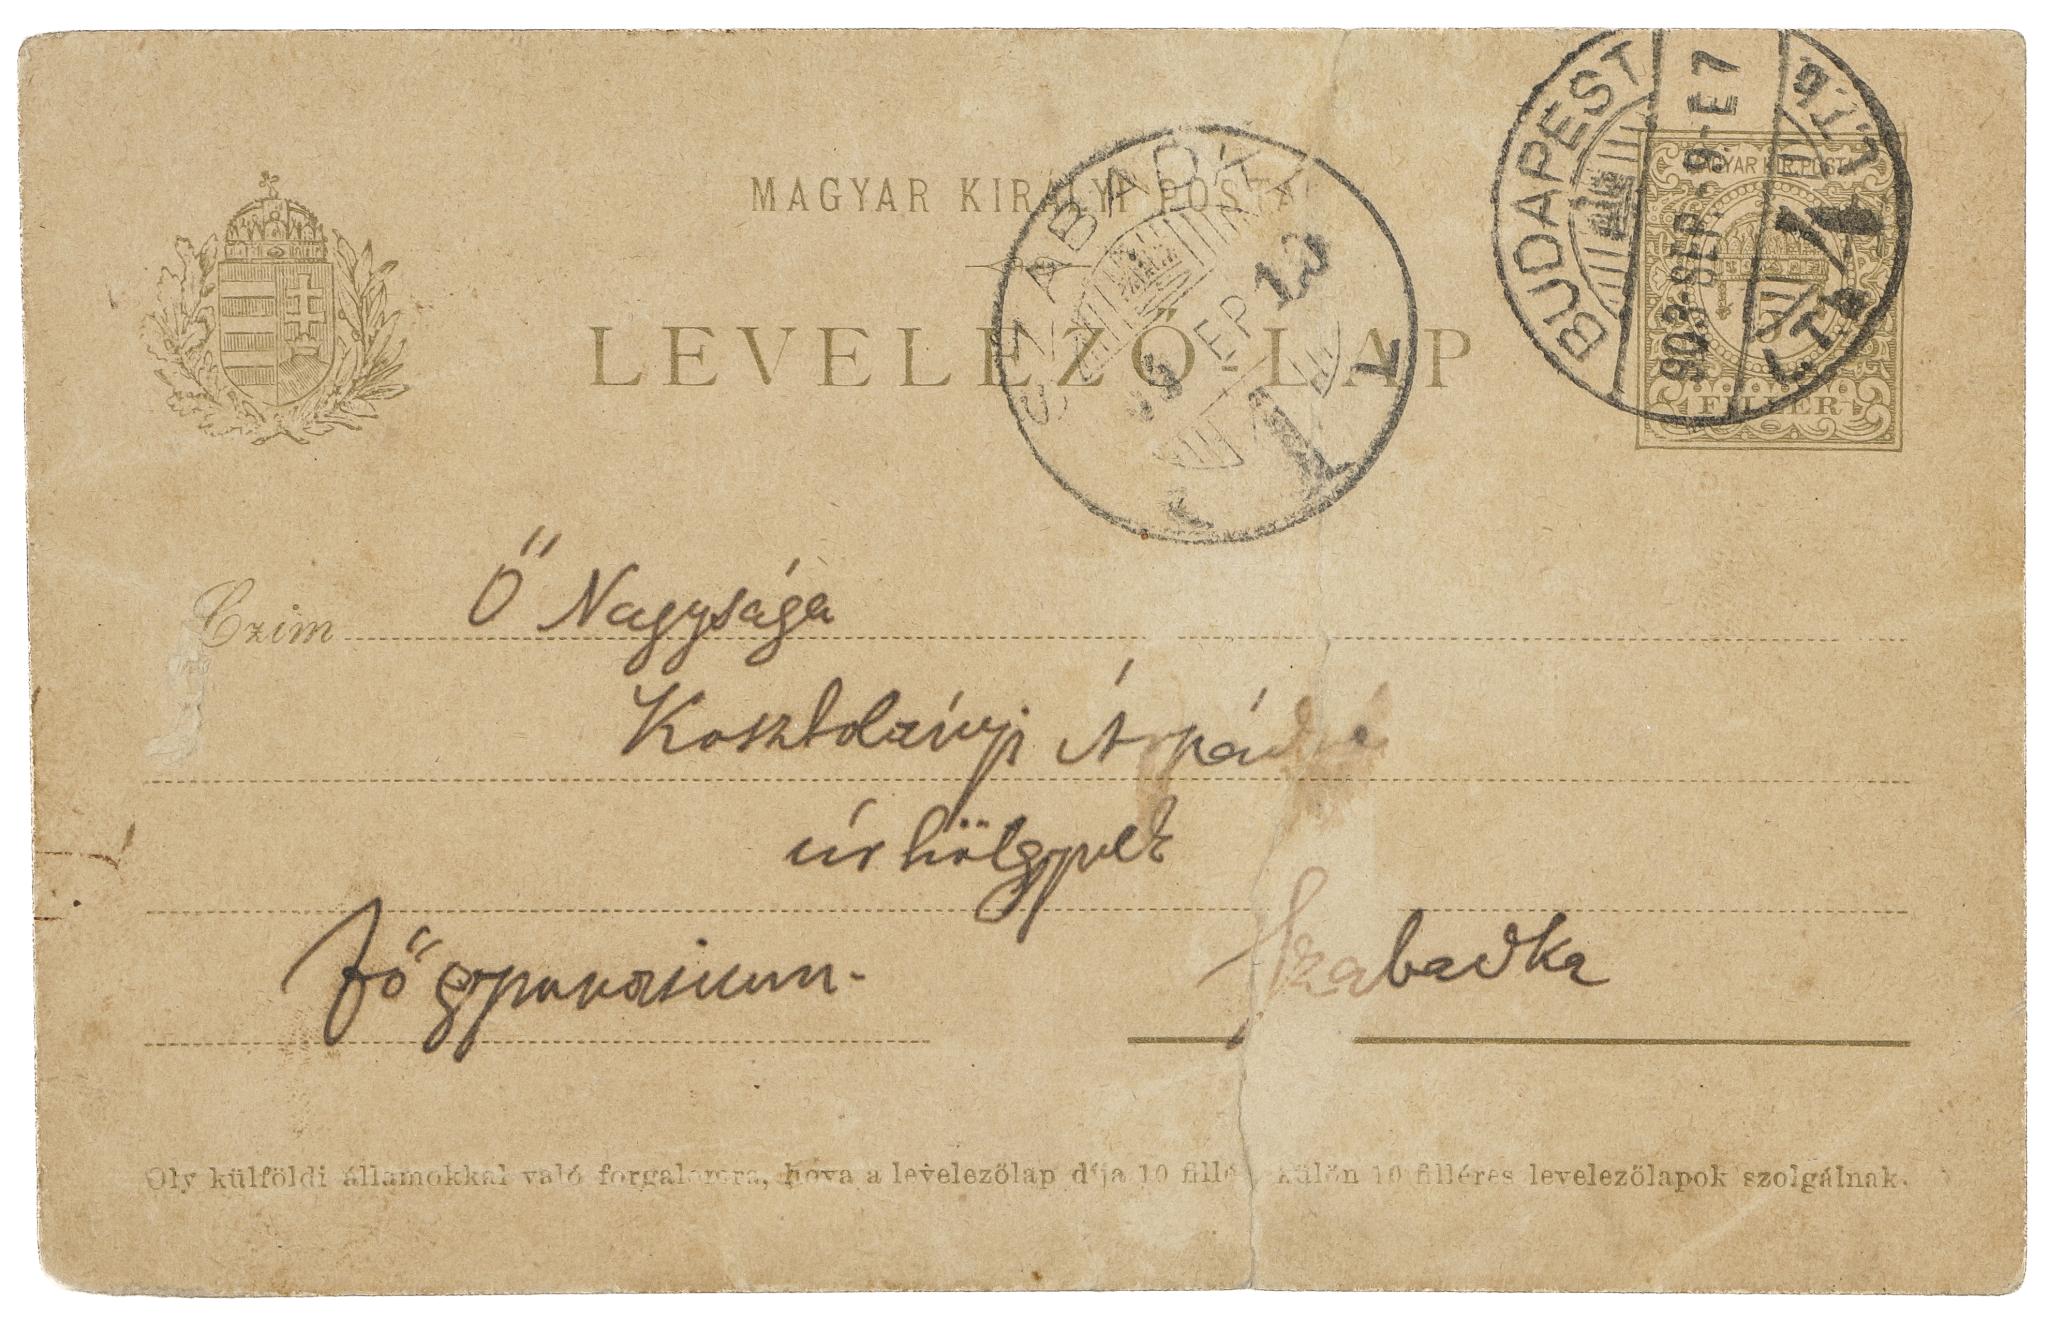 MAGYAR KIRÁLYI POSTA
LEVELEZŐ-LAP
BUDAPEST
903 SEP. 9 E7
MAGYAR KIR. POSTA
FILLÉR
SZABADK
EP 10
1
Czim Ő Nagysága
Kosztolányi Árpádné
úrhölgynek
Főgymnasium. Szabadka
Oly külföldi államokkal való forgalomra, hova a levelezőlap díja 10 fillé külön 10 filléres levelezőlapok szolgálnak.